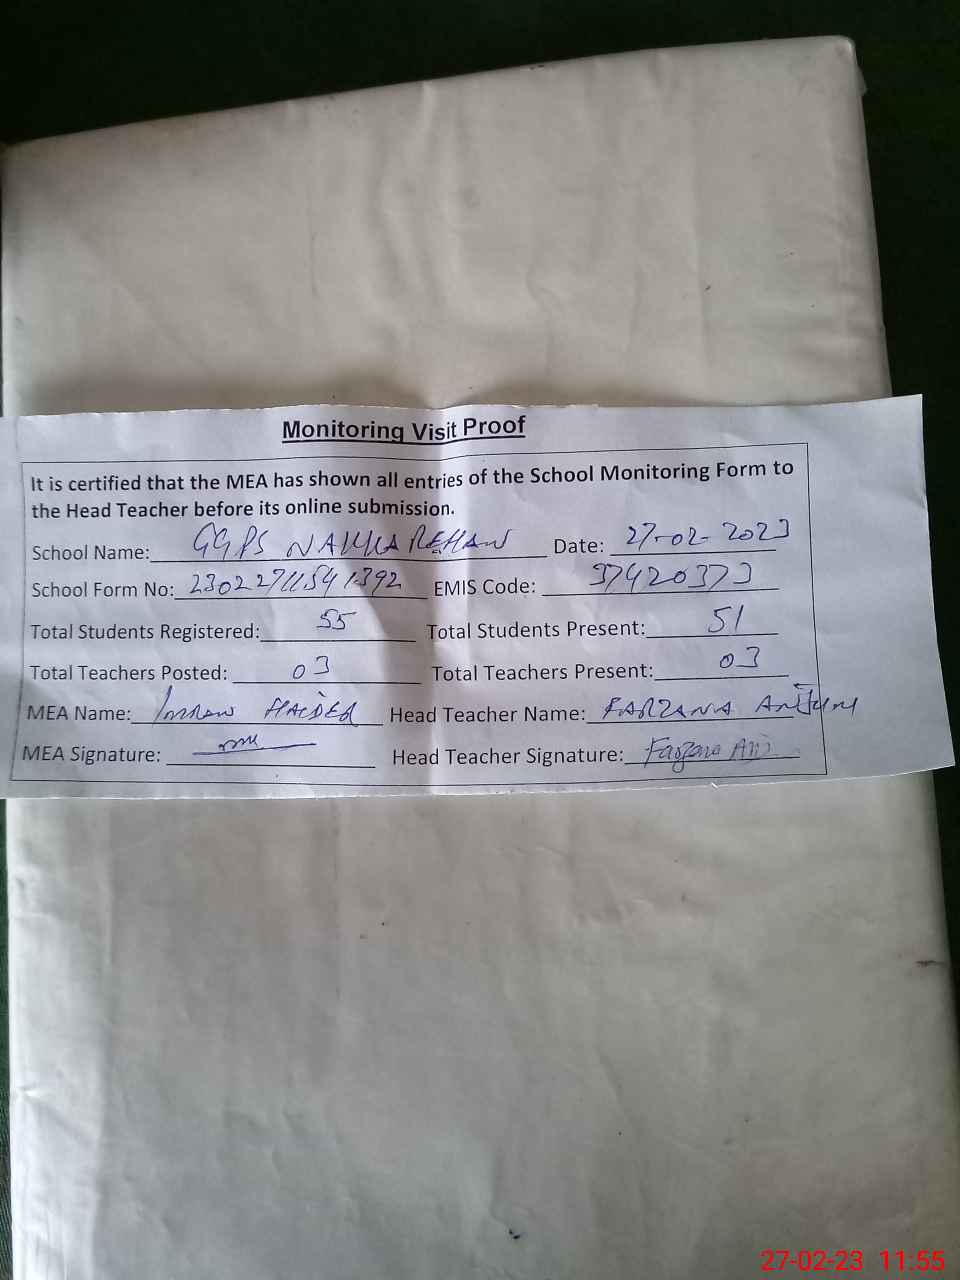 Monitoring Visit Proof
It is certified that the MEA has shown all entries of the School Monitoring Form to
the Head Teacher before its online submission.
School Name: GGPS NAKKA REHAN Date: 27-02-2023
School Form No: 23022711541392 EMIS Code: 37420373
Total Students Registered: 55 Total Students Present: 51
Total Teachers Posted: 03 Total Teachers Present: 03
MEA Name: Imran HAIDER Head Teacher Name: FARZANA ANJUM
MEA Signature: Head Teacher Signature: Farzana
27-02-23 11:55